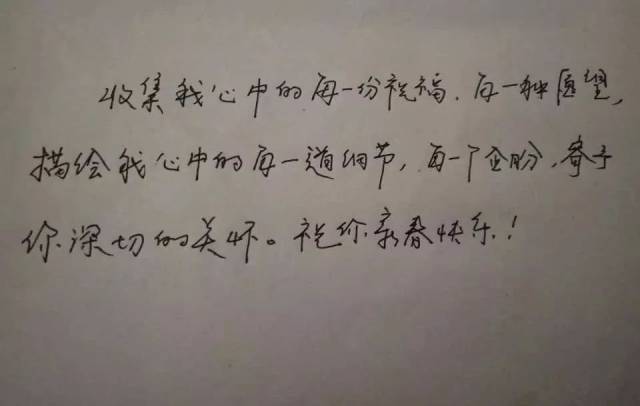 收集我心中的每一份祝福,每一种愿望,
描绘我心中的每一道细节,每一个企盼,寄予
你深切的关怀。祝你新春快乐!